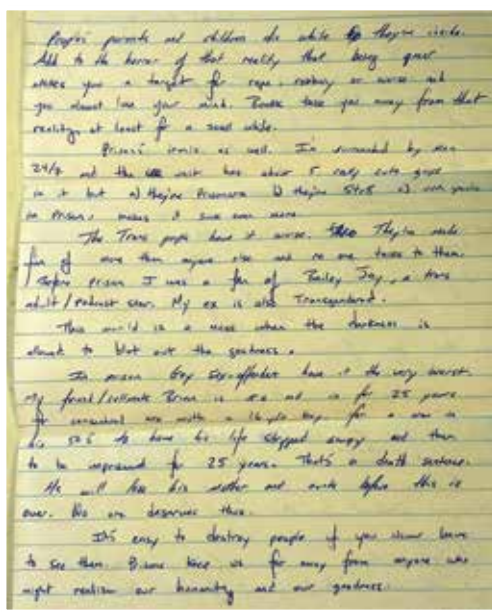 People's parents and children die while they're inside.
Add to the horror of that reality that being queer
makes you a target for rape, robbery or worse and
you almost lose your mind. Books take you away from that
reality, at least for a small while.
Prison's ironic as well. I'm surrounded by men
24/7 and the unit has about 5 really cute guys
in it but a) they're b) they're c)
in prison, makes it even more
The Trans people have it worse. They're made
fun of more than anyone else and no one talks to them.
Before prison I was a fan of Bailey Jay, a trans
adult/podcast star. My ex is also Transgendered.
This world is a mess when the darkness is
allowed to blot out the goodness.
In prison Gay Sex-offenders have it the very worst.
My friend/cellmate Brian is and in for 25 years
for consensual with a boy. For a man in
his 50's to have his life stripped away and then
to be imprisoned for 25 years. That's a death sentence.
He will lose his mother and before this is
over. No one deserves this.
It's easy to destroy people if you never have
to see them. us far away from anyone who
might realize our humanity and our goodness.